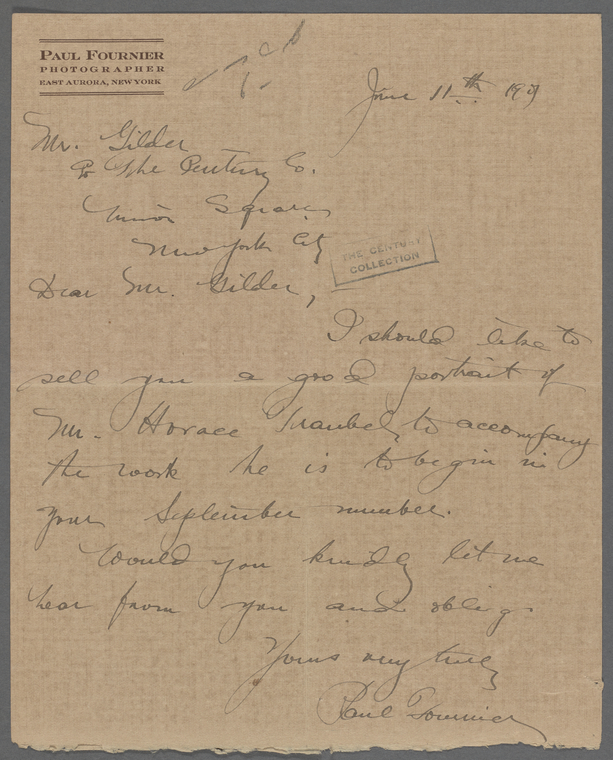 PAUL FOURNIER
PHOTOGRAPHER
EAST AURORA, NEW YORK
June 11th 190
Mr. Gilder
℅ The Century Co.
Union Square,
New York City
THE CENTURY
COLLECTION
Dear Mr. Gilder,
I should like to
sell you a good portrait of
Mr. Horace Traubel, to accompany
the work he is to begin in
your September number.
Would you kindly let me
hear from you and oblige
Yours very truly
Paul Fournier